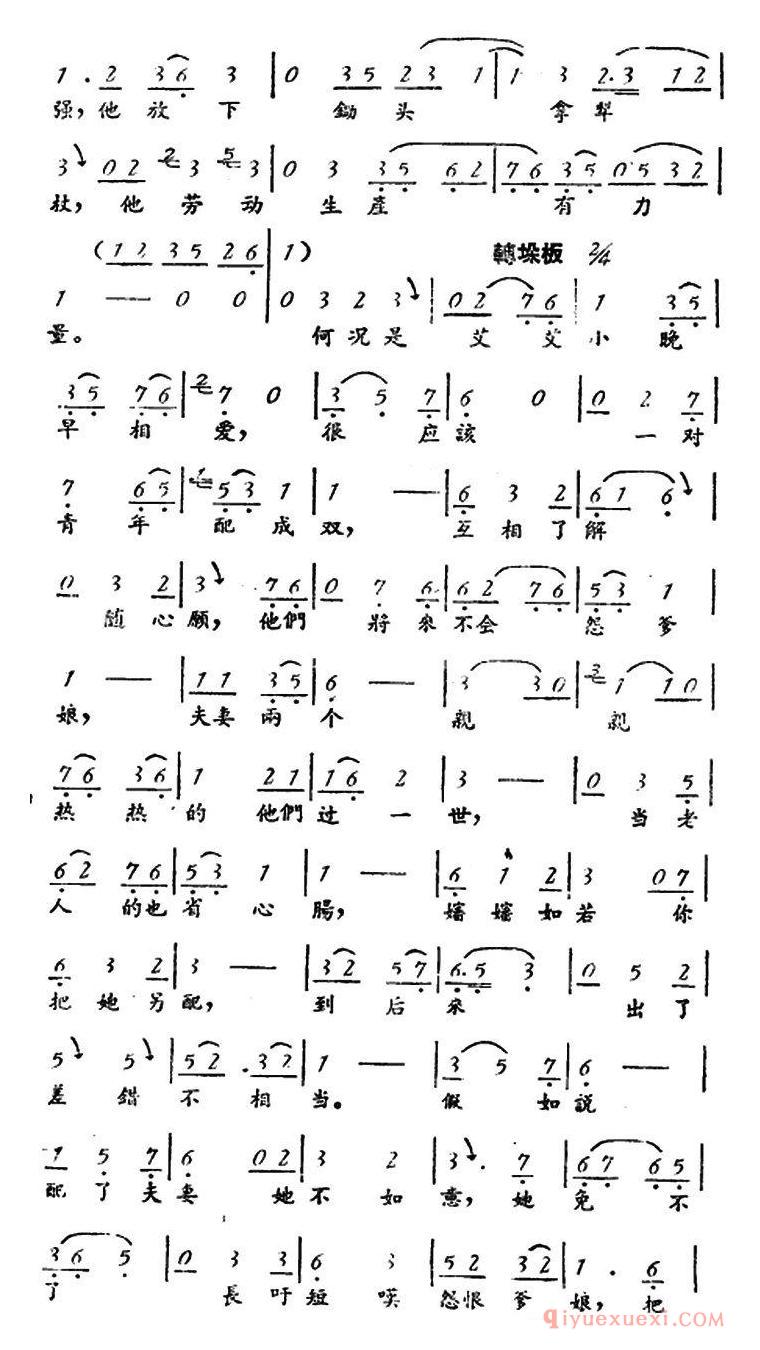 1 . 2 3 6 3 | 0 3 5 2 3 1 | 1 3 2 . 3 1 2 |
强，他 放 下 鋤 头 拿 犁
3 0 2 2 3 5 3 | 0 3 3 5 6 2 | 7 6 3 5 0 5 3 2 |
杖，他 劳 动 生 產 有 力
( 1 2 3 5 2 6 | 1 ) 轉垛板 2/4
1 — 0 0 | 0 3 2 3 | 0 2 7 6 | 1 3 5 |
量。 何 况 是 艾 艾 小 晚
3 5 7 6 | 2 7 0 | 3 5 7 | 6 0 | 0 2 7 |
早 相 爱， 很 应 該 一 对
7 6 5 | 1 5 3 1 | 1 — | 6 3 2 | 6 1 6 |
青 年 配 成 双， 互 相 了 解
0 3 2 | 3 7 6 | 0 7 6 | 6 2 7 6 | 5 3 1 |
随 心 願， 他們 將 來 不 会 怨 爹
1 — | 1 1 3 5 | 6 — | 3 3 0 | 3 1 1 0 |
娘， 夫妻 兩 个 親 親
7 6 3 6 | 1 2 1 | 1 6 2 | 3 — | 0 3 5 |
热 热 的 他們 过 一 世， 当 老
6 2 7 6 | 5 3 1 | 1 — | 6 1 2 | 3 0 7 |
人 的也 省 心 腸， 嬸 嬸 如 若 你
6 3 2 | 3 — | 3 2 5 7 | 6 . 5 3 | 0 5 2 |
把 她 另 配， 到 后 來 出 了
5 5 | 5 2 . 3 2 | 1 — | 3 5 7 | 6 — |
差 錯 不 相 当。 假 如 說
1 5 7 | 6 0 2 | 3 2 | 3 . 7 | 6 7 6 5 |
配 了 夫 妻 她 不 如 意， 她 免 不
3 6 5 | 0 3 3 | 6 3 | 5 2 3 2 | 1 . 6 |
了 長 吁 短 嘆 怨恨 爹 娘， 把
qiyuexuexi.com